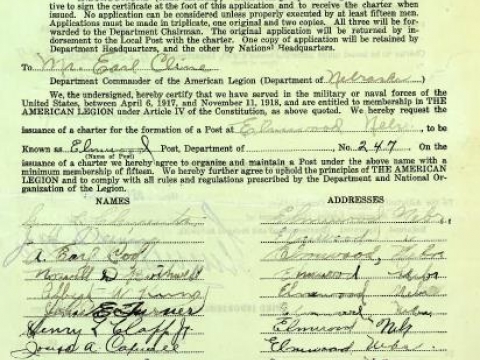 tive to sign the certificate at the foot of this application and to receive the charter when
issued. No application can be considered unless properly executed by at least fifteen men.
Applications must be made in triplicate, one original and two copies. All three will be for-
warded to the Department Chairman. The original application will be returned by in-
dorsement to the Local Post with the charter. One copy of application will be retained by
Department Headquarters, and the other by National Headquarters.
To Mr. Earl Cline
Department Commander of the American Legion (Department of Nebraska)
We, the undersigned, hereby certify that we have served in the military or naval forces of the
United States, between April 6, 1917, and November 11, 1918, and are entitled to membership in THE
AMERICAN LEGION under Article IV of the Constitution, as above quoted. We hereby request the
issuance of a charter for the formation of a Post at Elmwood Nebr, to be
Known as Elmwood Post, Department of No. 247. On the
(Name of Post)
issuance of a charter we hereby agree to organize and maintain a Post under the above name with a
minimum membership of fifteen. We hereby further agree to uphold the principles of THE AMERICAN
LEGION and to comply with all rules and regulations prescribed by the Department and National Or-
ganization of the Legion.
NAMES ADDRESSES
Elmwood Neb.
A. Earl Cook Elmwood, Nebr
D Elmwood Nebr
Elmwood Nebr
John E Turner Elmwood Nebr
Henry L Clapp Jr Elmwood Neb
A. Elmwood Nebr